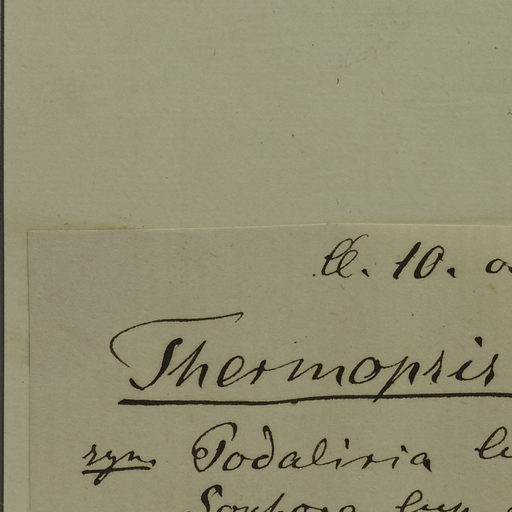 Cl. 10. o
Thermopsis
syn. Podaliria lu
Sophora lup